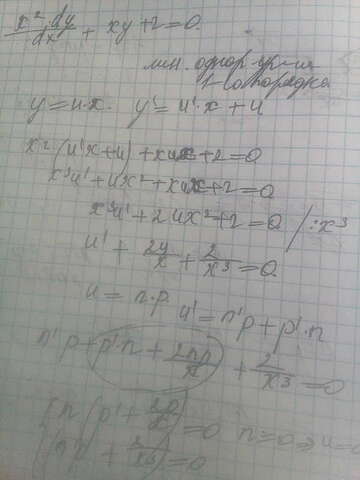 x² dy/dx + xy + 2 = 0.
лин. однор. ур-ния
1-го порядка
y = u·x. y' = u'·x + u
x²(u'x + u) + xux + 2 = 0
x³u' + ux² + xux + 2 = 0
x³u' + 2ux² + 2 = 0 / :x³
u' + 2u/x + 2/x³ = 0
u = n·p. u' = n'p + p'·n
n'p + p'·n + 2np/x + 2/x³ = 0
n(p' + 2p/x) = 0 n = 0 ⇒ u = 0
+ 2/x³ = 0